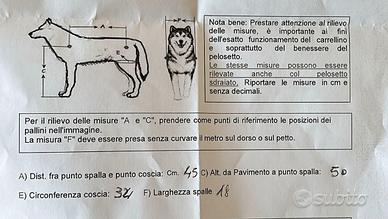 A
F
C
E
Nota bene: Prestare attenzione al rilievo
delle misure, è importante ai fini
dell'esatto funzionamento del carrellino
e soprattutto del benessere del
pelosetto.
Le stesse misure possono essere
rilevate anche col pelosetto
sdraiato. Riportare le misure in cm e
senza decimali.
Per il rilievo delle misure "A e "C", prendere come punti di riferimento le posizioni dei
pallini nell'immagine.
La misura "F" deve essere presa senza curvare il metro sul dorso o sul petto.
A) Dist. fra punto spalla e punto coscia: Cm. 45 C) Alt. da Pavimento a punto spalla: 50
E) Circonferenza coscia: 34 F) Larghezza spalle 18
subito